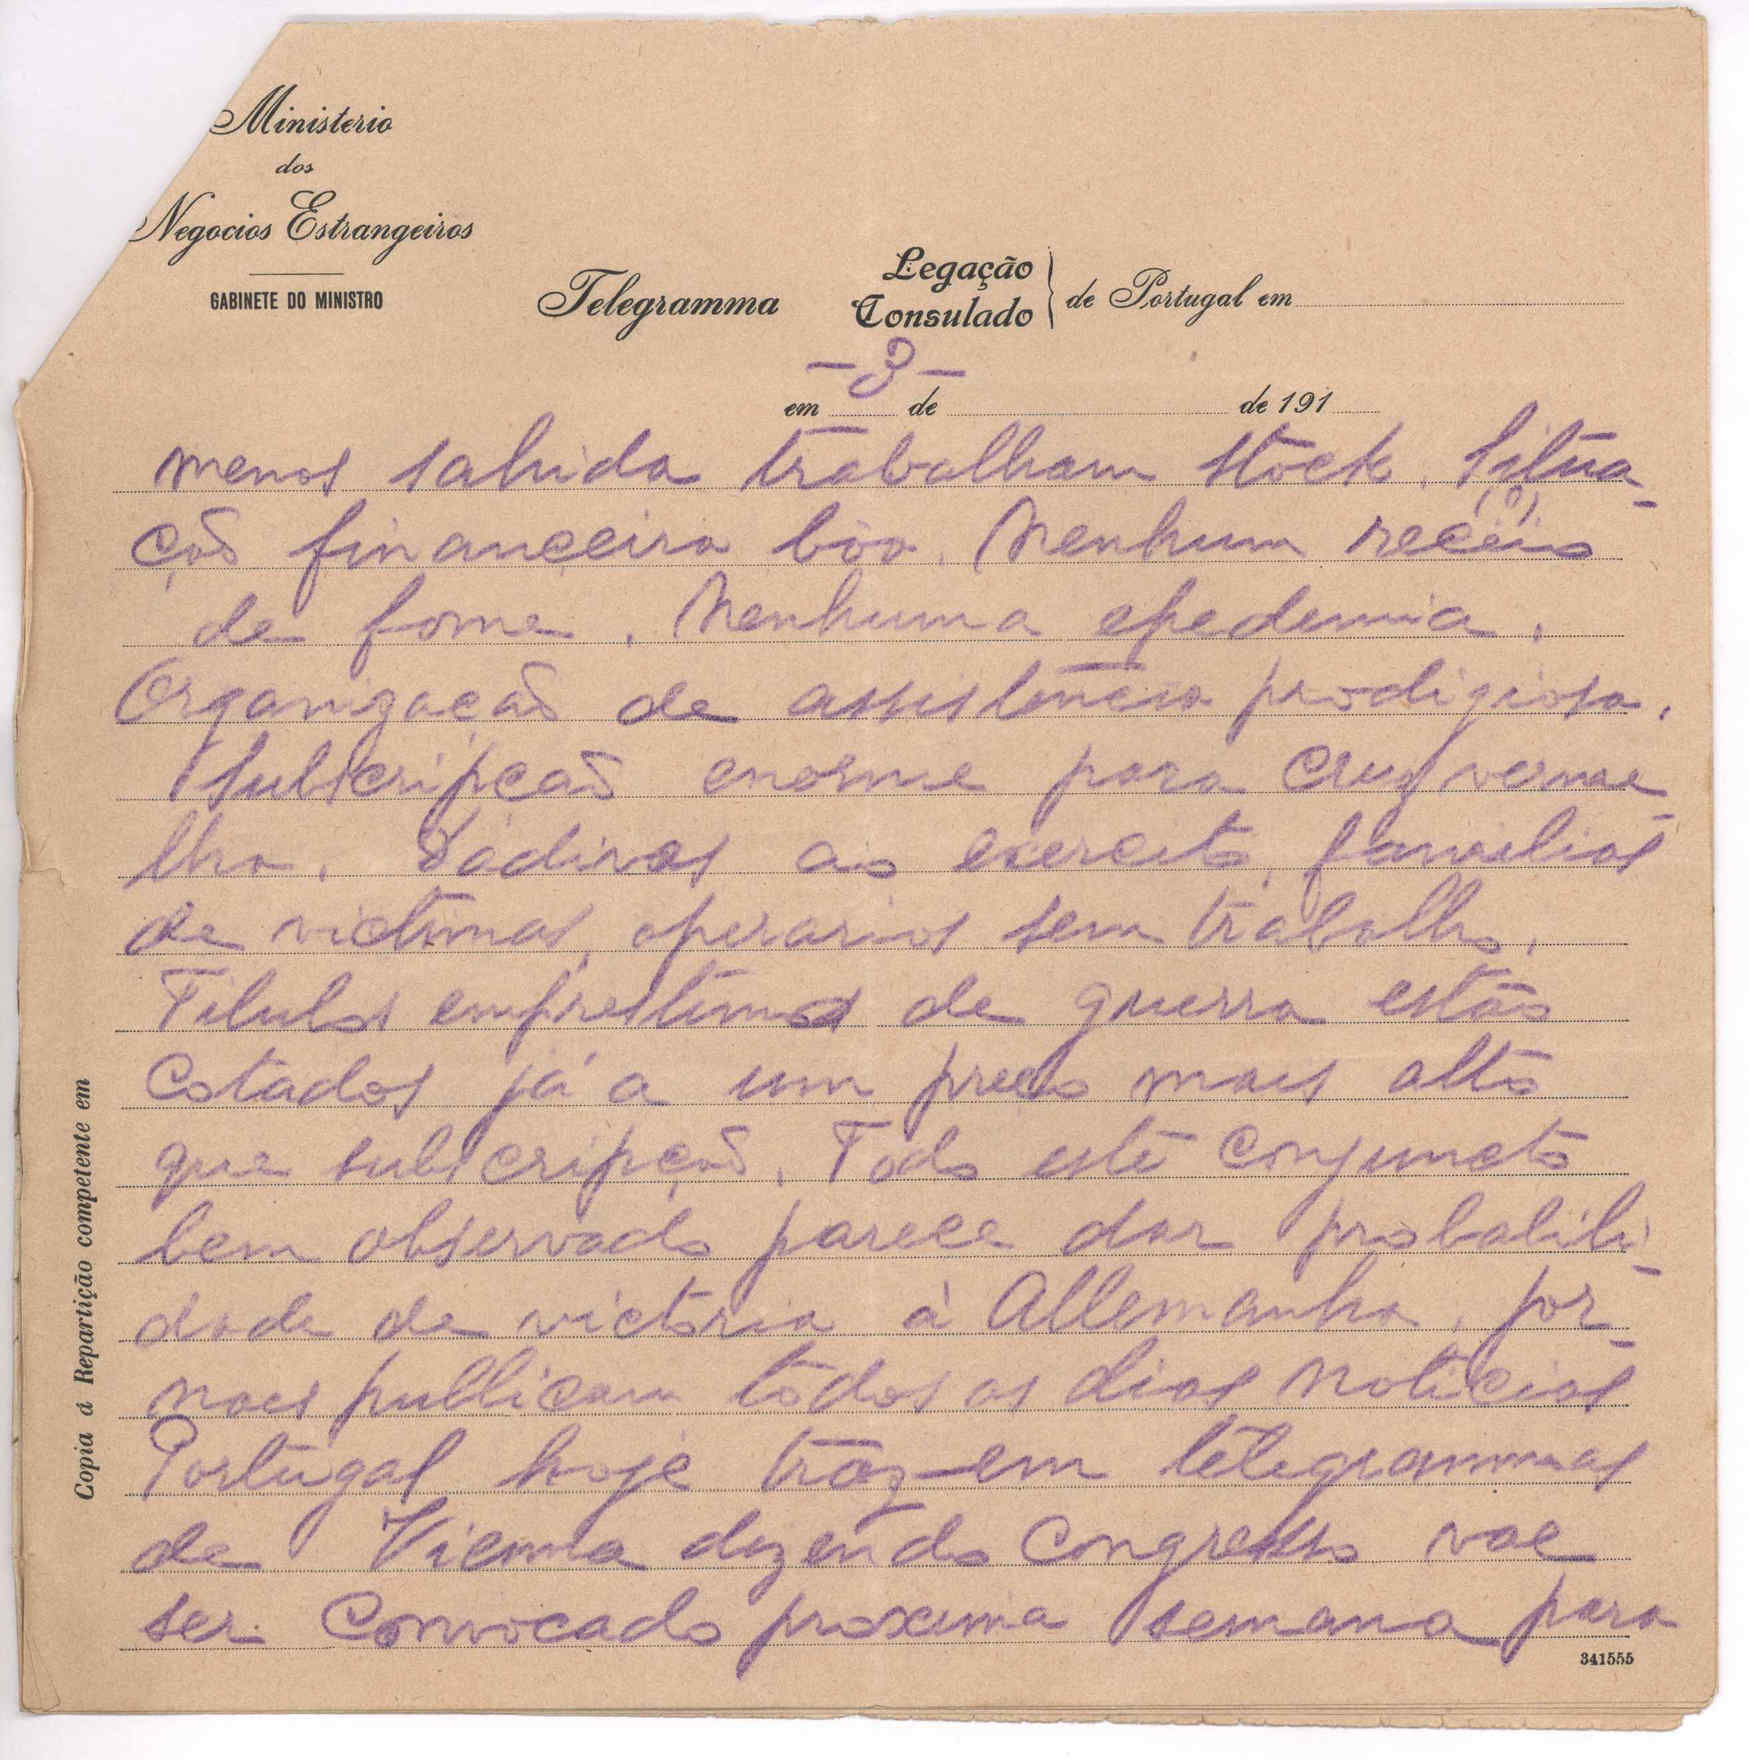 Ministerio
dos
Negocios Estrangeiros
GABINETE DO MINISTRO
Telegramma
Legação
Consulado
de Portugal em
- 3 -
em de de 191
menos sahida trabalham stock. Situa-
(?)
ção financeira bôa. Nenhum receio
de fome. Nenhuma epedemia.
Organização de assistencia prodigiosa.
Subscripção enorme para cruz verme-
lha. Dádivas ao exercito, familias
de victimas, operarios sem trabalho.
Titulos emprestimos de guerra estão
cotados já a um preço mais alto
que subscripção. Todo este conjuncto
bem observado parece dar probabili-
dade de victoria á Allemanha. jor-
naes publicam todos os dias noticias
Portugal hoje traz-em telegrammas
de Vienna dizendo Congresso vae
ser convocado proxima semana para
Copia á Repartição competente em
341555